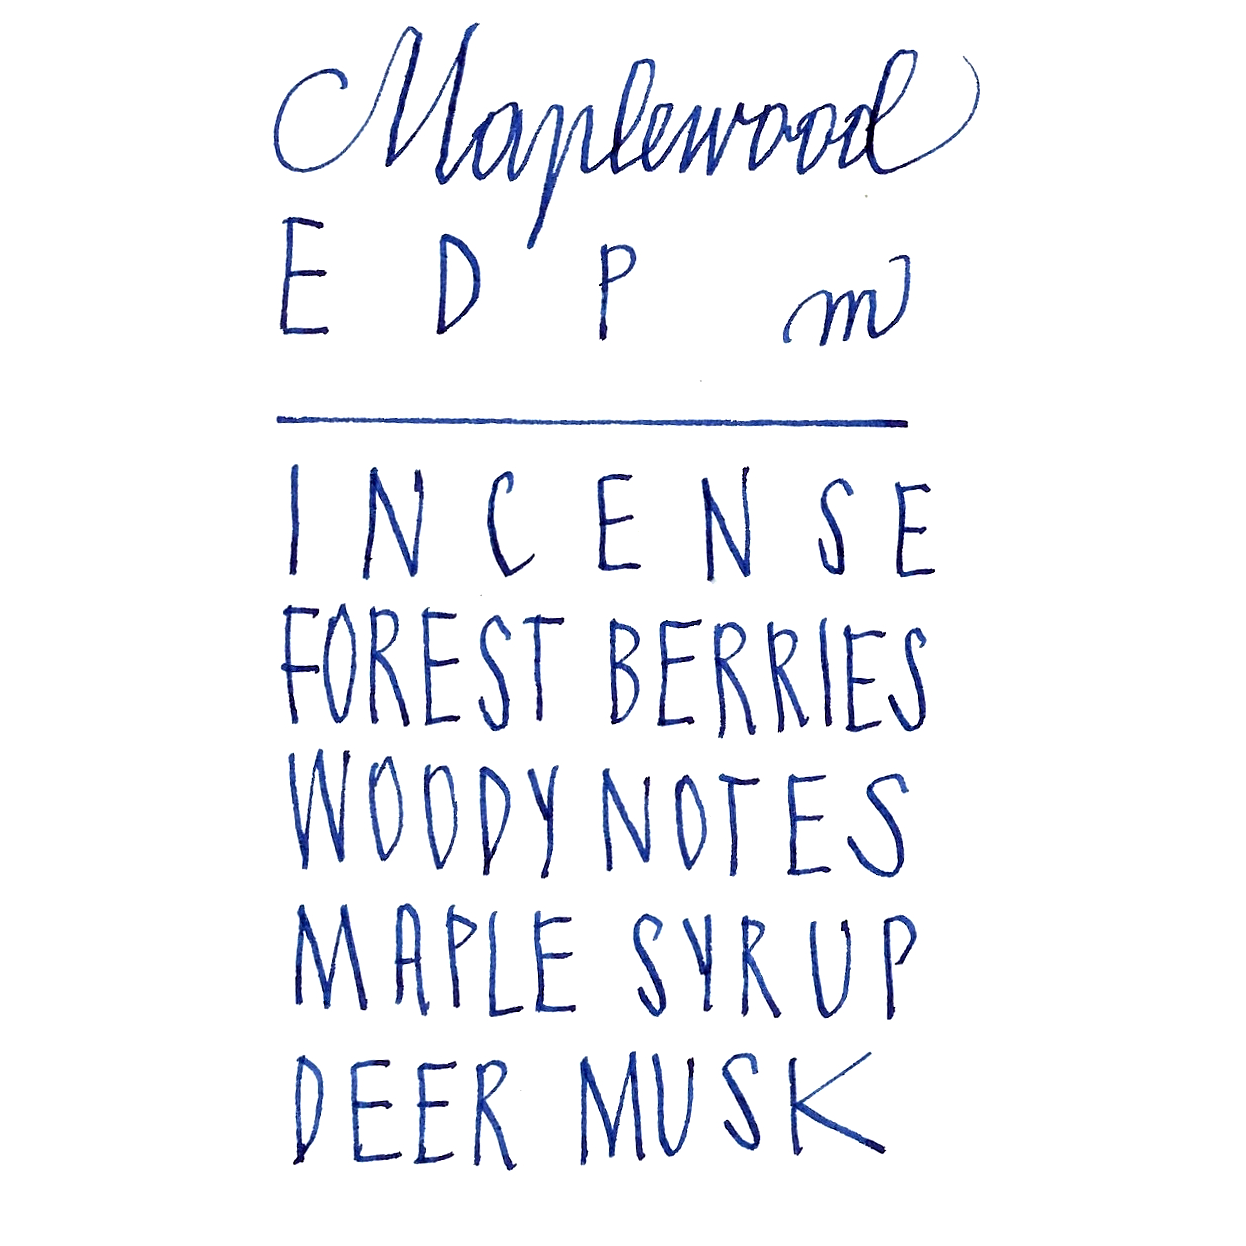 Maplewood
E D P m
INCENSE
FOREST BERRIES
WOODY NOTES
MAPLE SYRUP
DEER MUSK